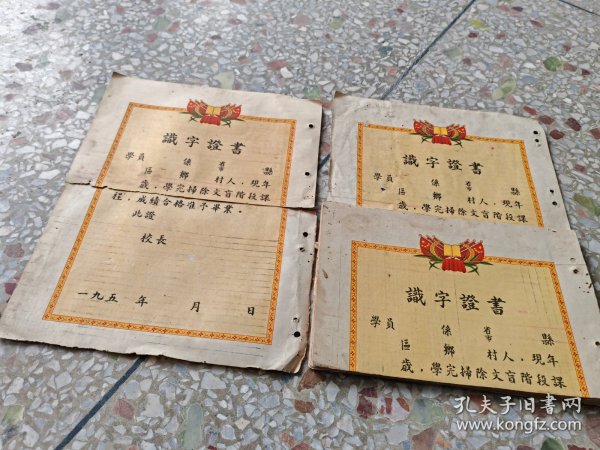 識字證書
學員 係 省市 縣
區 鄉 村人,現年
歲,學完掃除文盲階段課
程,成績合格准予畢業。
此證
校長
一九五 年 月 日
識字證書
學員 係 省市 縣
區 鄉 村人,現年
歲,學完掃除文盲階段課
識字證書
學員 係 省市 縣
區 鄉 村人,現年
歲,學完掃除文盲階段課
孔夫子旧书网
www.kongfz.com